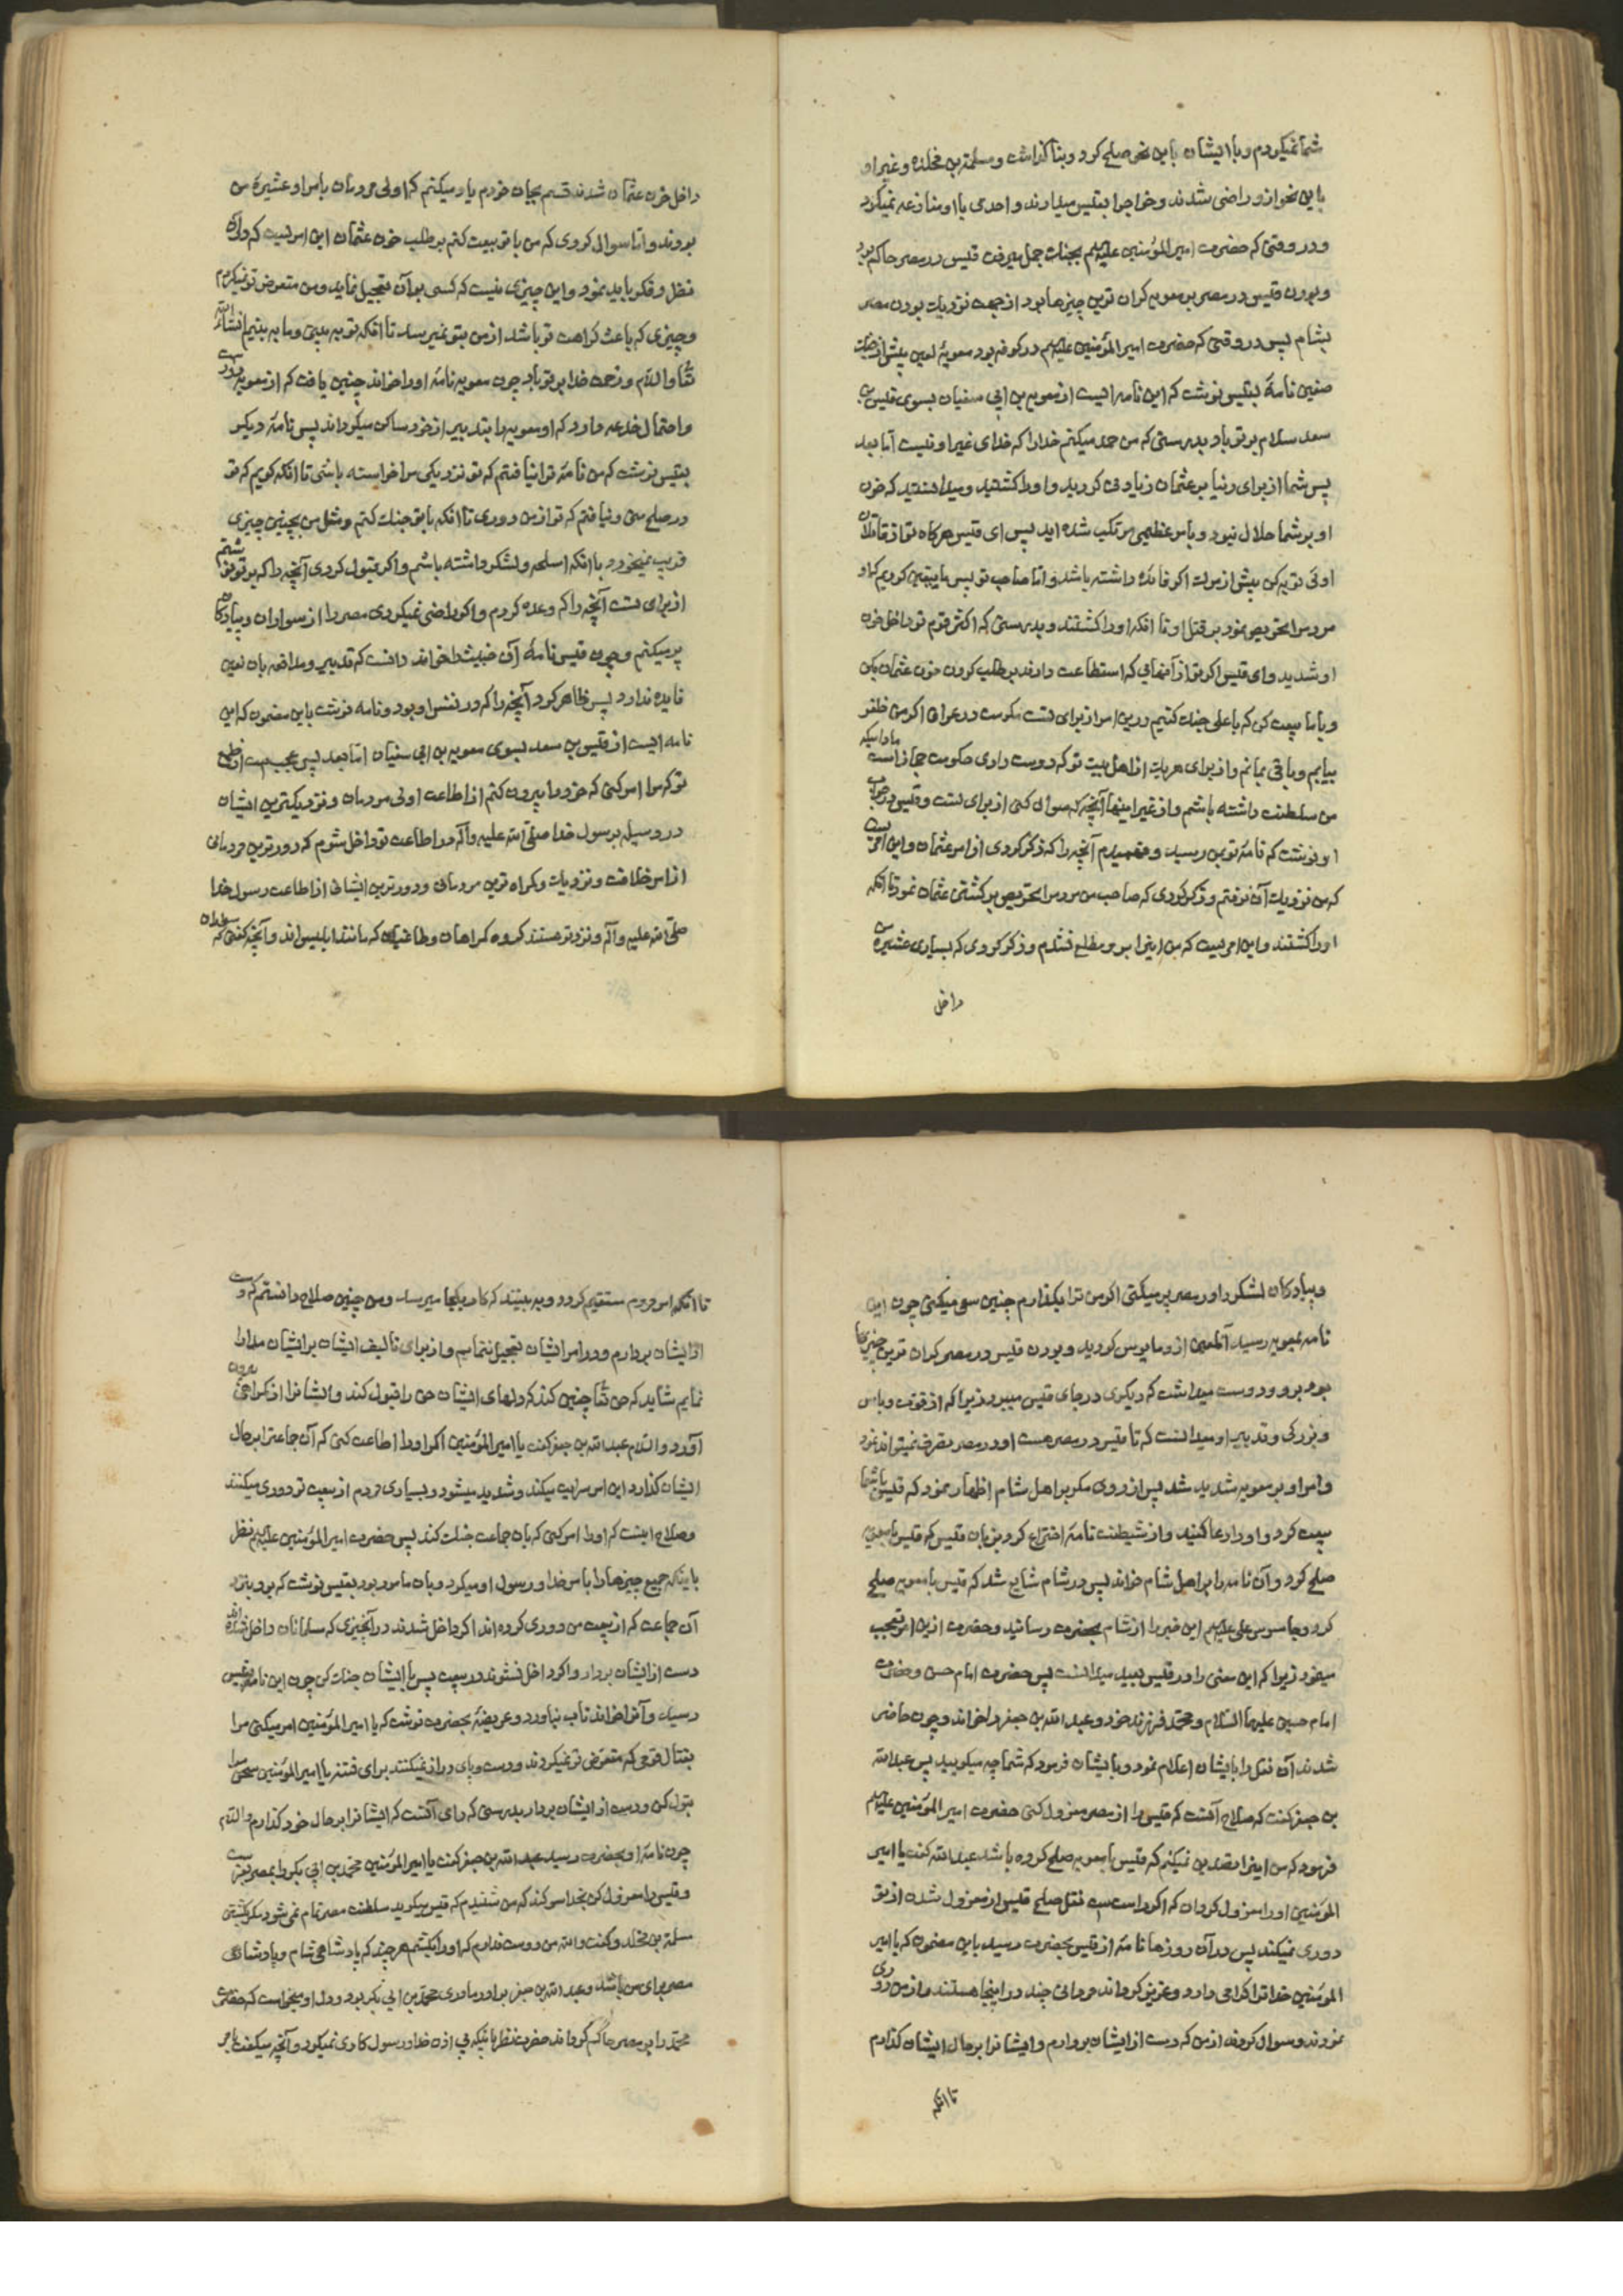 شما نمیکردم و با ایشان باین نحو صلح کرد و بنا گذاشت و مسلمة بن مخلد و غیر او
باین نحو ازو راضی شدند و خراج را بقیس میدادند و احدی با او منازعه نمیکرد
و در وقتی که حضرت امیرالمؤمنین علیه‌السلم بجنک جمل میرفت قیس در مصر حاکم بود
و بودن قیس در مصر بر معویه کران ترین چیزها بود از جهت نزدیک بودن مصر
بشام پس در وقتی که حضرت امیرالمؤمنین علیه‌السلم در کوفه بود معویهٔ لعین پیش از جنک
صفین نامهٔ بقیس نوشت که این نامه ایست از معویه بن ابی سفیان بسوی قیس بن
سعد سلام بر تو باد بدرستی که من حمد میکنم خدا را که خدای غیر او نیست اما بعد
پس شما از برای دنیا بر عثمان زیادتی کردید و او را کشتید و میدانستید که خون
او بر شما حلال نبود و بامر عظیمی مرتکب شده اید پس ای قیس هرکاه تو از قاتلان
اوئی توبه کن پیش از موت اکر فایدهٔ داشته باشد و اما صاحب تو پس ما یقین کردیم که او
مردم را تحریص نمود بر قتل او تا انکه او را کشتند و بدرستی که اکثر قوم تو داخل خون
او شدید و ای قیس اکر تو از آنهائی که استطاعت دارند بر طلب کردن خون عثمان بکن
و با ما بیعت کن که با علی جنک کنیم درین امر و از برای تست حکومت در عراق اکر من ظفر
یابم و باقی بمانم و از برای هر یک از اهل بیت تو که دوست داری حکومت حجاز است مادامیکه
من سلطنت داشته باشم و از غیر اینها آنچه که سوال کنی از برای تست و قیس در جواب
او نوشت که نامهٔ تو بمن رسید و فهمیدم آنچه را که ذکر کردی از امر عثمان و این امریست
که من نزدیک آن نرفتم و ذکر کردی که صاحب من مردم را تحریص بر کشتن عثمان نمود تا انکه
او را کشتند و این امریست که من اینرا برو مطلع نشدم و ذکر کردی که بسیاری عشیره من
داخل
داخل خون عثمان شدند قسم بجان خودم یاد میکنم که اولی مردمان بامر او عشیرهٔ من
بودند و اما سوال کردی که من با تو بیعت کنم بر طلب خون عثمان این امریست که در آن
نظر و فکر باید نمود و این چیزی نیست که کسی بر آن تعجیل نماید و من متعرض تو نمیکردم
و چیزی که باعث کراهت تو باشد از من بتو نمیرسد تا انکه تو به بینی و ما به بینیم انشاء الله
تعالی والسلام و رحمت خدا بر تو باد چون معویه نامهٔ او را خواند چنین یافت که از معویه دورست
و احتمال خدعه دارد که او معویه را بتدبیر از خود ساکن میکرداند پس نامهٔ دیکر
بقیس نوشت که من نامهٔ ترا نیافتم که تو نزدیکی مرا خواسته باشی تا انکه کویم که تو
در صلح منی و نیافتم که تو از من دوری تا انکه با تو جنک کنم و مثل من بچنین چیزی
فریب نمیخورد با انکه اسلحه و لشکر داشته باشم و اکر قبول کردی آنچه را که بر تو نوشتم
از برای تست آنچه را که وعده کردم و اکر راضی نمیکردی مصر را از سواران و پیادکان
پر میکنم و چون قیس نامهٔ آن خبیث را خواند دانست که تدبیر و مدافعه بان لعین
فایده ندارد پس ظاهر کرد آنچه را که در نفس او بود و نامه نوشت باین مضمون که این
نامه ایست از قیس بن سعد بسوی معویه بن ابی سفیان اما بعد پس عجب است از طمع
تو که مرا امر کنی که خود را بیرون کنم از اطاعت اولی مردمان و نزدیکترین ایشان
در وسیله برسول خدا صلی الله علیه و آله و در اطاعت تو داخل شوم که دورترین مردمانی
از امر خلافت و نزدیک و کمراه ترین مردمانی و دورترین ایشانی از اطاعت رسول خدا
صلی الله علیه و آله و نزد تو هستند کروه کمراهان و طاغیان که مانند ابلیس اند و آنچه کفتی که سواران
و پیادکان لشکر را در مصر پر میکنی اکر من ترا بکذارم چنین سعی میکنی چون این
نامه بمعویه رسید آنلعین ازو مایوس کردید و بودن قیس در مصر کران ترین چیزها
بود برو و دوست میداشت که دیکری در جای قیس میبود زیرا که از قوت و باس
و بزرکی و تدبیر او میدانست که تا قیس در مصر هست او در مصر تصرف نمیتواند نمود
و امر او بر معویه شدید شد پس از روی مکر بر اهل شام اظهار نمود که قیس با شما
بیعت کرد و او را دعا کنید و از شیطنت نامهٔ اختراع کرد بزبان قیس که قیس با معویه
صلح کرد و آن نامه را بر اهل شام خواند پس در شام شایع شد که قیس با معویه صلح
کرد و جاسوس علی علیه‌السلم این خبر را از شام بحضرت رسانید و حضرت ازین امر تعجب
میفرمود زیرا که این معنی را در قیس بعید میدانست پس حضرت امام حسن و حضرت
امام حسین علیهما السّلام و محمد فرزند خود و عبدالله بن جعفر را خواند و چون حاضر
شدند آن نقل را بایشان اعلام نمود و بایشان فرمود که شما چه میکویید پس عبدالله
بن جعفر کفت که صلاح آنست که قیس را از مصر معزول کنی حضرت امیرالمؤمنین علیه‌السلم
فرمود که من اینرا تصدیق نمیکنم که قیس با معویه صلح کرده باشد عبدالله کفت یا امیر
المؤمنین او را معزول کردان که اکر راست است نقل صلح قیس از معزول شدن از تو
دوری نمیکند پس در آن روزها نامهٔ از قیس بحضرت رسید باین مضمون که یا امیر
المؤمنین خدا ترا کرامی دارد و عزیز کرداند مردمانی چند در اینجا هستند و از من دوری
نمودند و سوال کردند از من که دست از ایشان بردارم و ایشانرا بر حال ایشان کذارم
تا انکه
تا انکه امر مردم مستقیم کردد و به بینند که کار بکجا میرسد و من چنین صلاح دانستم که دست
از ایشان بردارم و در امر ایشان تعجیل ننمایم و از برای تالیف ایشان بر ایشان مدارا
نمایم شاید که حق تعالی چنین کند که دلهای ایشان حق را قبول کند و ایشانرا از کمراهی بیرون
آورد والسّلام عبدالله بن جعفر کفت یا امیرالمؤمنین اکر او را اطاعت کنی که آن جماعت را بر حال
ایشان کذارد این امر سرایت میکند و شدید میشود و بسیاری مردم از بیعت تو دوری میکنند
و صلاح اینست که او را امر کنی که بان جماعت جنک کند پس حضرت امیرالمؤمنین علیه‌السلم نظر
باینکه جمیع چیزها را بامر خدا و رسول او میکرد و بان مامور بود بقیس نوشت که برو بنزد
آن جماعت که از بیعت من دوری کرده اند اکر داخل شدند در آنچیزی که مسلمانان داخل شده اند
دست از ایشان بردار و اکر داخل نشوند در بیعت پس با ایشان جنک کن چون این نامه بقیس
رسید و آنرا خواند تاب نیاورد و عریضهٔ بحضرت نوشت که یا امیرالمؤمنین امر میکنی مرا
بقتال قومی که متعرّض تو نمیکردند و دست و پای دراز نمیکنند برای فتنه یا امیرالمؤمنین سخن مرا
قبول کن و دست از ایشان بردار بدرستی که رای آنست که ایشانرا بر حال خود کذارم والسّلام
چون نامهٔ او بحضرت رسید عبدالله بن جعفر کفت یا امیرالمؤمنین محمد بن ابی بکر را بمصر بفرست
و قیس را معزول کن بخدا سوکند که من شنیدم که قیس میکوید سلطنت مصر تمام نمی‌شود مکر بکشتن
مسلمة بن مخلد و کفت والله من دوست ندارم که او را بکشم هرچند که پادشاهی شام و پادشاهی
مصر برای من باشد و عبدالله بن جعفر برادر مادری محمد بن ابی بکر بود و دل او میخواست که حضرت
محمد را بر مصر حاکم کرداند حضرت نظر باینکه بی اذن خدا و رسول کاری نمیکرد و آنچه میکفت بامر